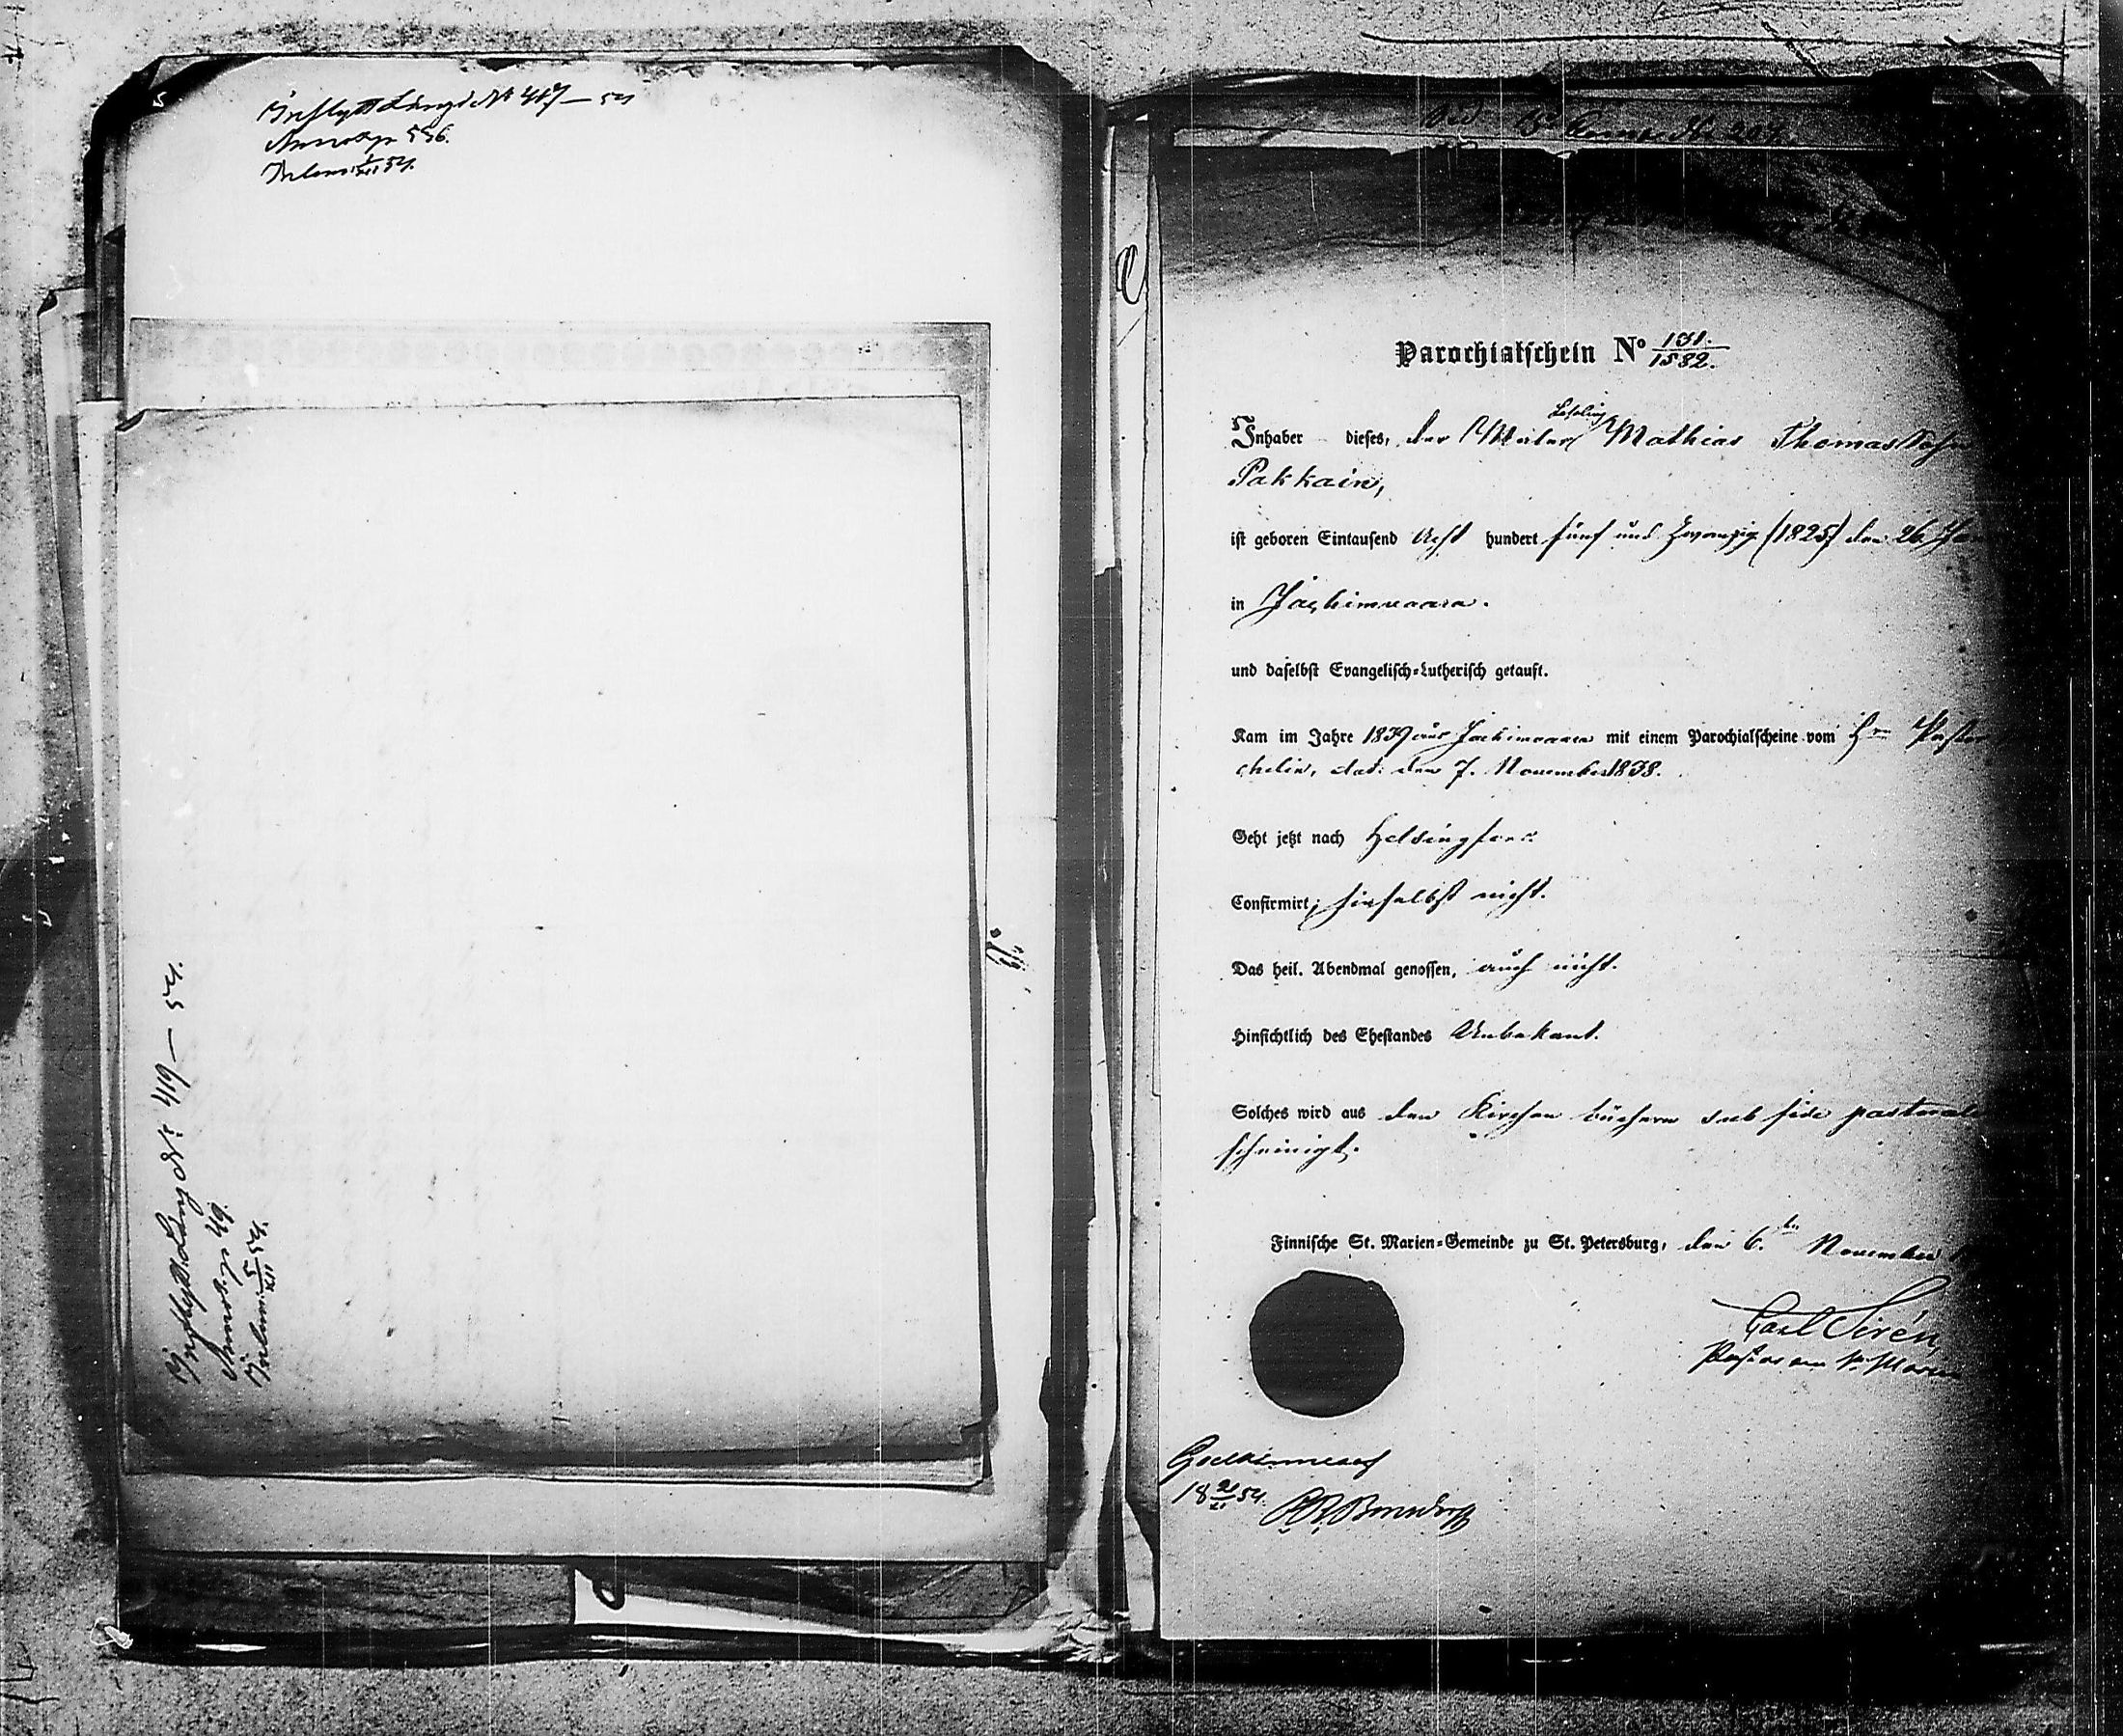 Inflytt. Längd № 417 — 54
Annot. p 556.
Inlem. 54.
Inflytt. Läng d № 419 — 54.
Annot. p 49.
Inlem. 5/XII 54.
Parochialschein No 131./1582.
Lehrling
Inhaber dieses, der Maler Mathias Thomas Sohn
Pakkain,
ist geboren Eintausend Acht hundert fünf und Zwanzig (1825) den 26 Jan
in Jaakimvaara.
und daselbst Evangelisch-Lutherisch getauft.
Kam im Jahre 1839 aus Jaakimvaara mit einem Parochialscheine vom Hrn Pastor
chelin, dat. den 7. November 1838.
Geht jetzt nach Helsingfors
Confirmirt, hieselbst nicht.
Das heil. Abendmal genossen, auch nicht.
Hinsichtlich des Ehestandes Unbekant.
Solches wird aus den Kirchen büchern sub fide pastorali
scheinigt.
Finnische St. Marien-Gemeinde zu St. Petersburg, den 6. ten November
Carl Sirén,
Pastor an St. Marien
18 21/XI 54.